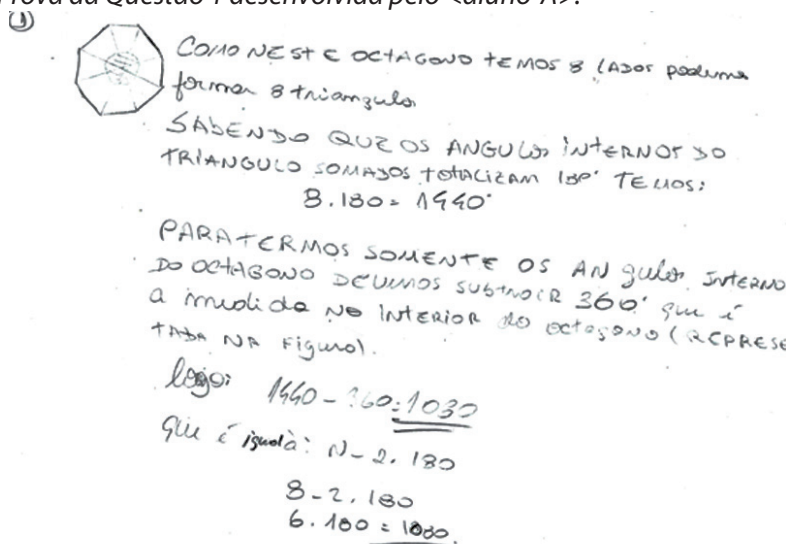 Prova da Questão 1 desenvolvida pelo <aluno A>.
1
COMO NESTE OCTAGONO TEMOS 8 LADOS podemos
formar 8 triangulos
SABENDO QUE OS ANGULOS INTERNOS DO
TRIANGULO SOMADOS TOTALIZAM 180° TEMOS:
8.180 = 1440°
PARA TERMOS SOMENTE OS ANgulos INTERNO
DO OCTAGONO DEVEMOS SUBTRAIR 360° que é
a medida NO INTERIOR do octogono (REPRESE
TADA NA Figura).
logo: 1440 - 360 = 1030
que é igual à: N - 2. 180
8 - 2. 180
6. 180 = 1080.